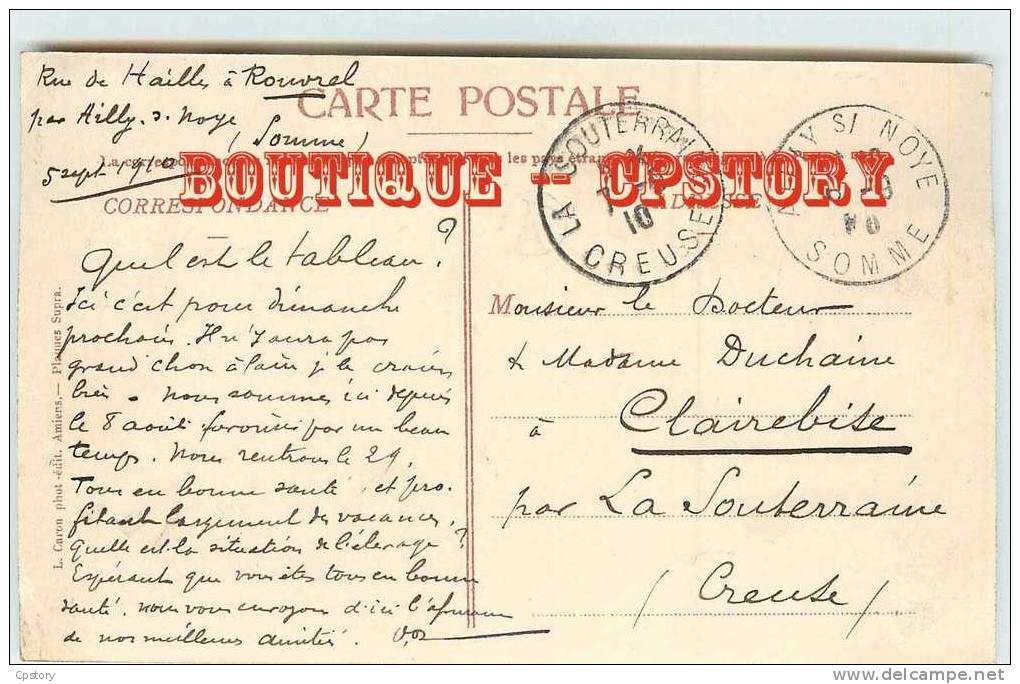 Rue de Hailles à Rouvrel
par Ailly. s. Noye
(Somme)
5 sept 1910
CARTE POSTALE
La les pays étran
BOUTIQUE -- CPSTORY
CORRESPONDANCE
ADRESSE
LA SOUTERRAINE
7
10
CREUSE
AILLY S/ NOYE
SOMME
Quel est le tableau ?
Ici c'est pour dimanche
prochain. Il n'y aura pas
grand chose à j'le crains
bien. Nous sommes ici depuis
le 8 août favorisés par un beau
temps. Nous rentrons le 29.
Tous en bonne santé et pro-
fitant largement des vacances.
Quelle est la situation de l'élevage ?
Espérant que vous êtes tous en bonne
santé. nous vous envoyons d'ici l'
de nos meilleures amitiés.
Monsieur le Docteur
& Madame Duchaine
à Clairebise
par La Souterraine
(Creuse)
L. Caron phot-édit. Amiens. — Plaques Supra.
Cpstory
http://www.delcampe.net